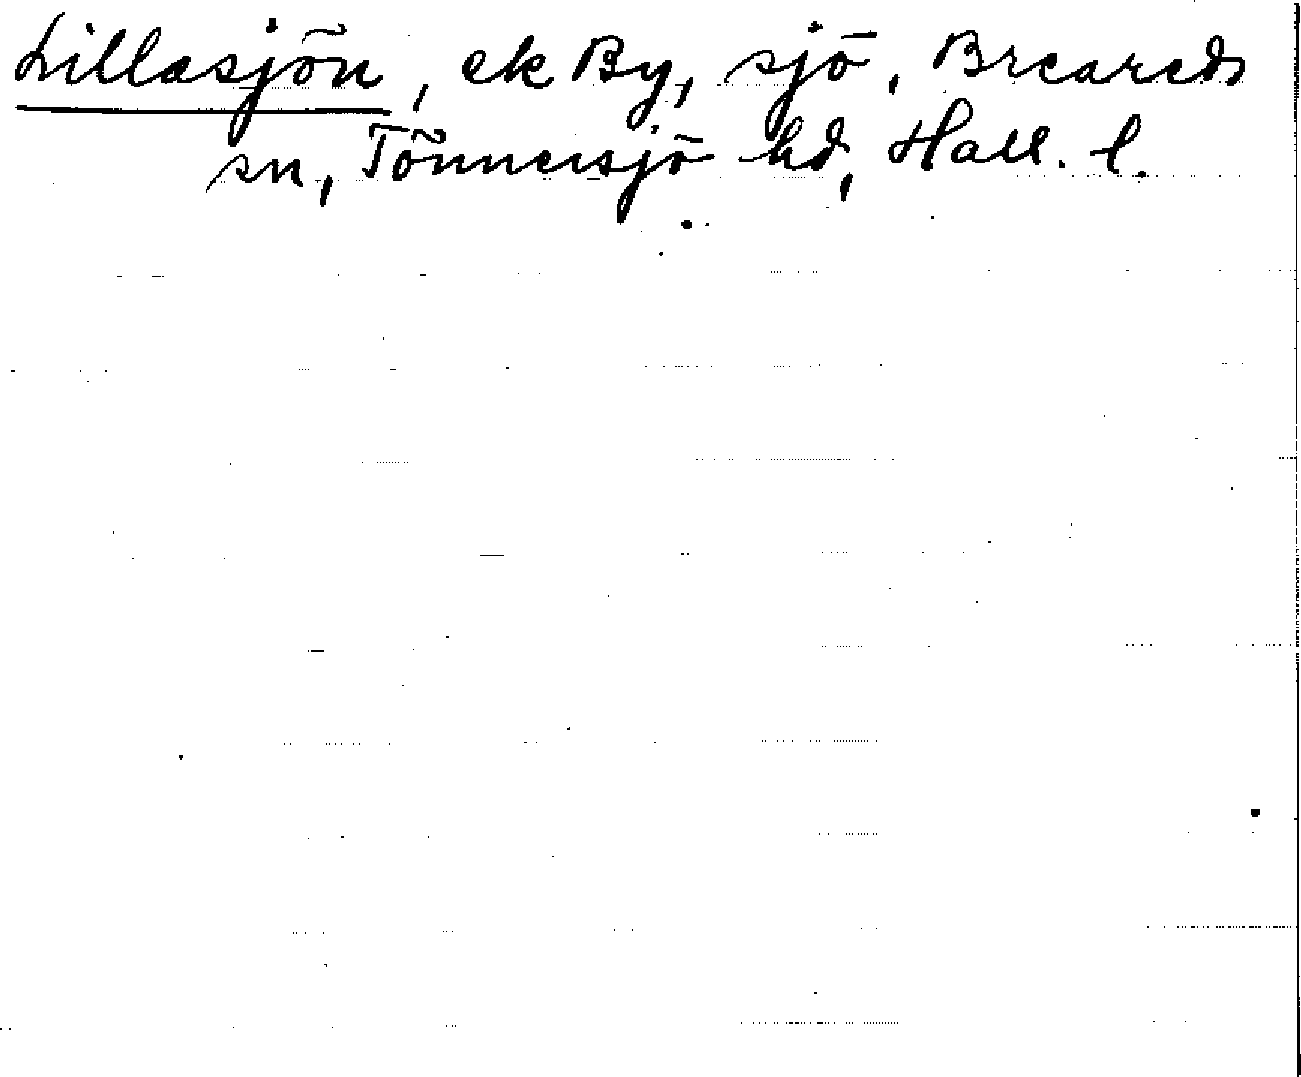 Lillasjön, ek By, sjö, Breareds
sn, Tönnersjö hd, Hall. l.